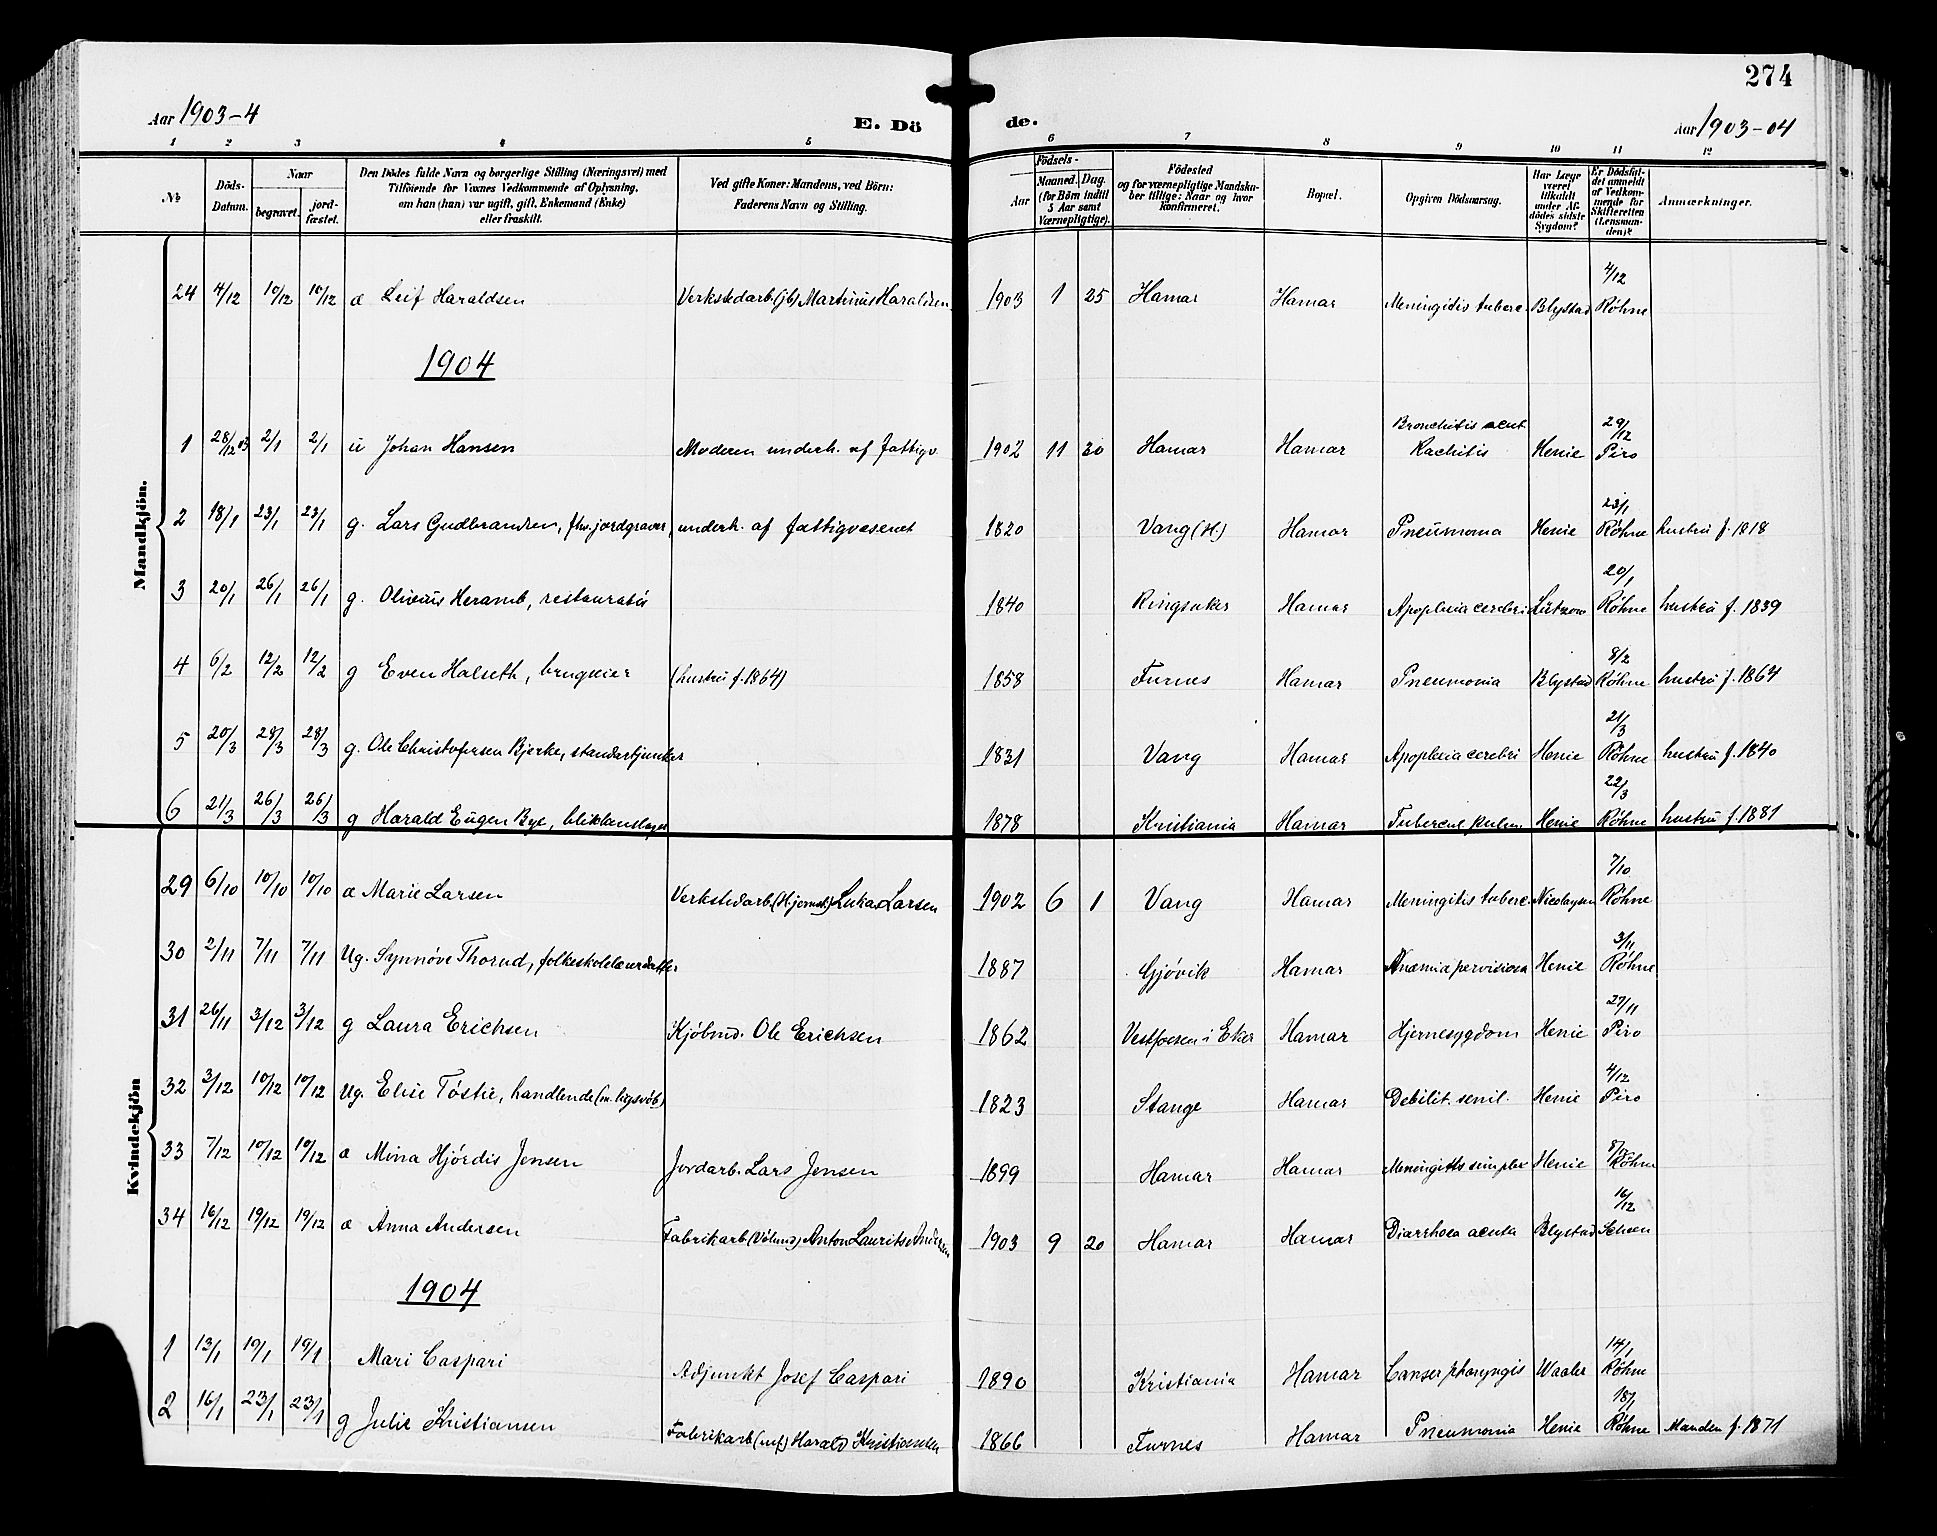 274
Aar 1903-4
E. Dö
de.
Aar 1903-04
1 2 3 4 5 6 7 8 9 10 11 12
No
Döds-
Datum.
Naar
begravet.
jord-
fæstet.
Den Dödes fulde Navn og borgerlige Stilling (Næringsvei) med
Tilföiende for Voxnes Vedkommende af Oplysning,
om han (hun) var ugift, gift, Enkemand (Enke)
eller fraskilt.
Ved gifte Koner: Mandens, ved Börn:
Faderens Navn og Stilling.
Födsels-
Aar
Maaned. Dag.
(for Börn indtil
5 Aar samt
Værnepligtige).
Födested
og for værnepligtige Mandska-
ber tillige: Naar og hvor
Konfirmeret.
Bopæl.
Opgiven Dödsaarsag.
Har Læge
været
tilkaldt
under Af-
dödes sidste
Sygdom?
Er Dödsfal-
det anmeldt
af Vedkom-
mende for
Skifteretten
(Lensman-
den)?
Anmærkninger.
Mandkjön.
24 4/12 10/12 10/12 æ Leif Haraldsen Verkstedarb. (jb) Martinius Haraldsen 1903 1 25 Hamar Hamar Meningitis tuberc. Blystad 4/12 Röhne
1904
1 28/12 03 2/1 2/1 u Johan Hansen Moderen underh. af fattigv. 1902 11 30 Hamar Hamar Bronchitis acut. Rachitis Henie 29/12 Piro
2 18/1 23/1 23/1 g. Lars Gudbrandsen, fhv. jordgraver, underh. af fattigvæsenet 1820 Vang (H.) Hamar Pneumonia Henie 23/1 Röhne hustru f. 1818
3 20/1 26/1 26/1 g. Olivius Heramb, restauratör 1840 Ringsaker Hamar Apoplexia cerebri Lützow 20/1 Röhne hustru f. 1839
4 6/2 12/2 12/2 g Even Halseth, brugseier (hustru f. 1864) 1858 Furnes Hamar Pneumonia Blystad 8/2 Röhne hustru f. 1864
5 20/3 28/3 28/3 g. Ole Christofersen Bjerke, standartjunker 1831 Vang Hamar Apoplexia cerebri Henie 21/3 Röhne hustru f. 1840
6 21/3 26/3 26/3 g Harald Eugen Bye, blikkenslager 1878 Kristiania Hamar Tubercul. pulm. Henie 22/3 Röhne hustru f. 1881
Kvindekjön
29 6/10 10/10 10/10 æ Marie Larsen Verkstedarb. (Hjernst.) Lukas Larsen 1902 6 1 Vang Hamar Meningitis tuberc. Nicolaysen 7/10 Röhne
30 2/11 7/11 7/11 Ug. Synnøve Thorud, folkeskolelærerdatter 1887 Gjøvik Hamar Anæmia perniciosa Henie 3/11 Röhne
31 26/11 3/12 3/12 g Laura Erichsen Kjöbmd. Ole Erichsen 1862 Vestfossen i Eker Hamar Hjernesygdom Henie 27/11 Piro
32 3/12 10/12 10/12 Ug. Elise Tøstie, handlende (m. ligsvöb) 1823 Stange Hamar Debilit. senil. Henie 4/12 Piro
33 7/12 10/12 10/12 æ Mina Hjørdis Jensen Jordarb. Lars Jensen 1899 Hamar Hamar Meningitis simplex Henie 8/12 Röhne
34 16/12 19/12 19/12 æ Anna Andersen Fabrikarb. (Vølund) Anton Lauritz Andersen 1903 9 20 Hamar Hamar Diarrhoea acuta Blystad 16/12 Schoen
1904
1 13/1 19/1 19/1 Mari Caspari Adjunkt Josef Caspari 1890 Kristiania Hamar Canser pharyngis Waaler 14/1 Röhne
2 16/1 23/1 23/1 g Julie Kristiansen Fabrikarb. (mf) Harald Kristiansen 1866 Furnes Hamar Pneumonia Henie 18/1 Röhne Manden f. 1871